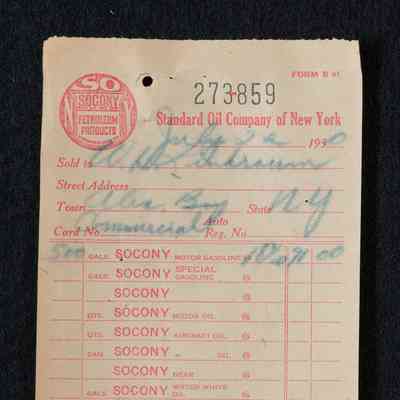 FORM B 91
SO
SOCONY
PETROLEUM
PRODUCTS
273859
Standard Oil Company of New York
July 26 1930
Sold to
Street Address
Town Alex. Bay State NY
Card No. Commercial Auto Reg. No.
500 GALS. SOCONY MOTOR GASOLINE @ 00
GALS. SOCONY SPECIAL GASOLINE @
SOCONY @
QTS. SOCONY MOTOR OIL @
QTS. SOCONY AIRCRAFT OIL @
CAN SOCONY OIL @
SOCONY GEAR @
GALS. SOCONY WATER WHITE OIL @